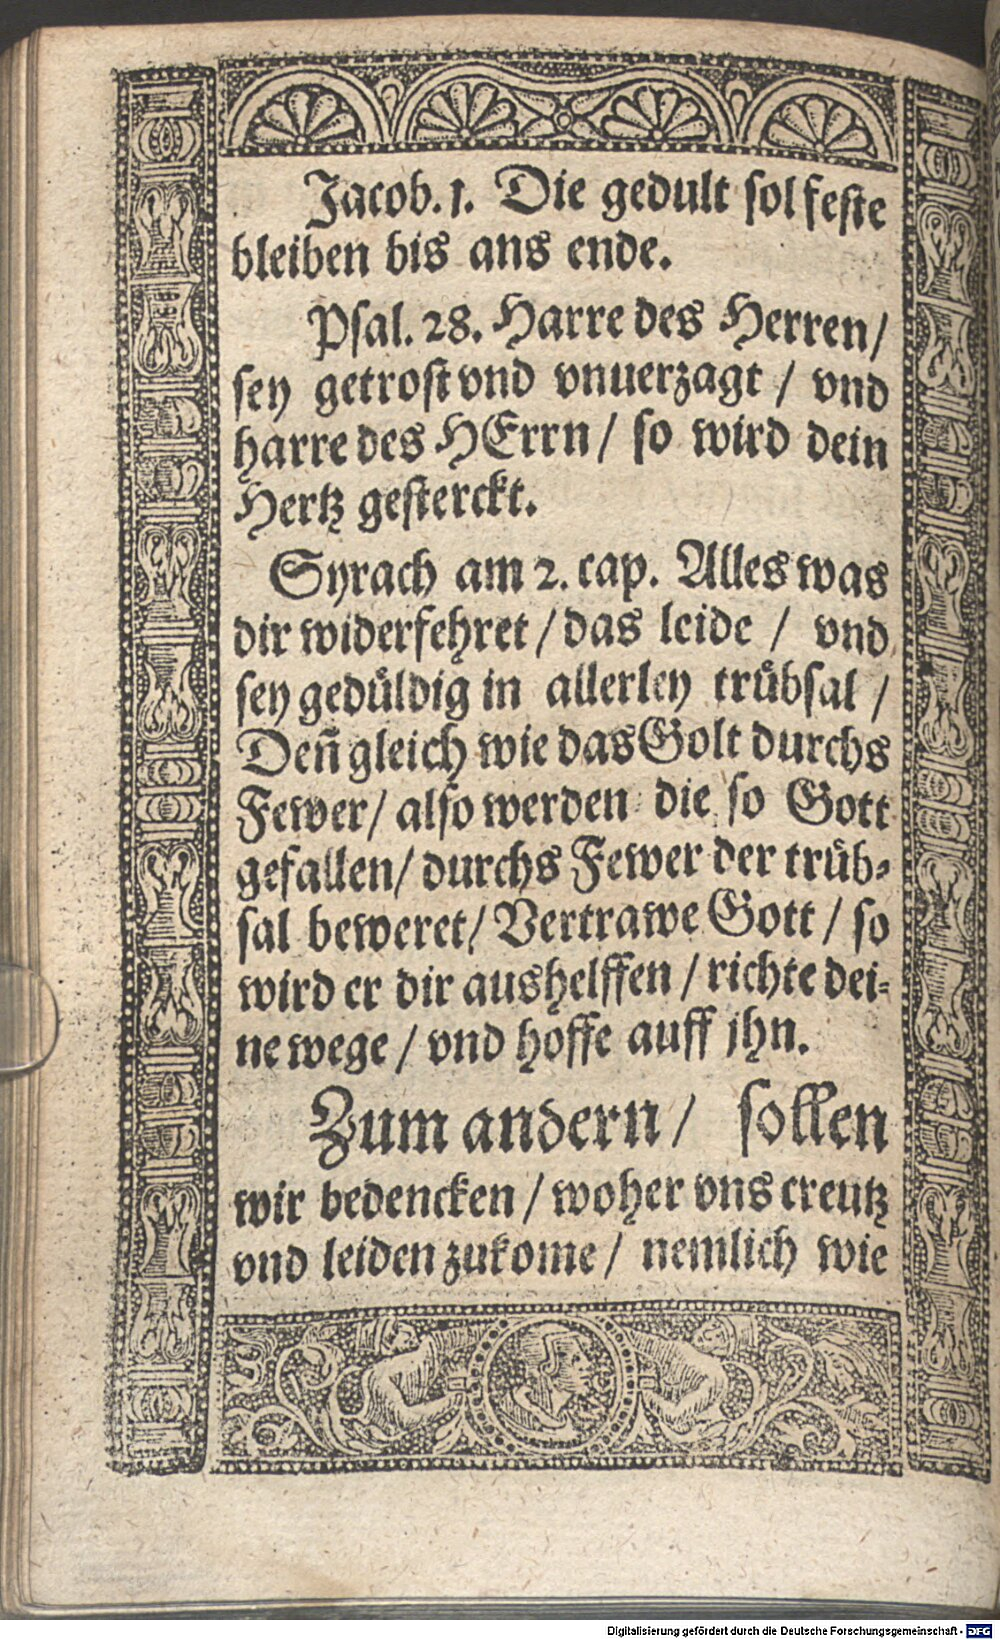 Jacob. 1. Die gedult sol feste
bleiben bis ans ende.
Psal. 28. Harre des Herren/
sey getrost vnd vnuerzagt / vnd
harre des HErrn/ so wird dein
Hertz gesterckt.
Syrach am 2. cap. Alles was
dir widerfehret / das leide / vnd
sey gedüldig in allerley trübsal /
Deñ gleich wie das Golt durchs
Fewer/ also werden die so Gott
gefallen/ durchs Fewer der trüb-
sal beweret/ Vertrawe Gott / so
wird er dir aushelffen / richte dei-
ne wege / vnd hoffe auff jhn.
Zum andern / sollen
wir bedencken / woher vns creutz
vnd leiden zukome / nemlich wie
Digitalisierung gefördert durch die Deutsche Forschungsgemeinschaft - DFG